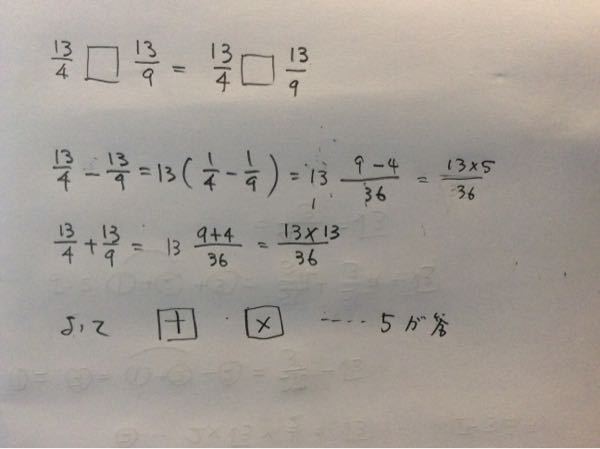 13/4 □ 13/9 = 13/4 □ 13/9
13/4 - 13/9 = 13(1/4 - 1/9) = 13 (9-4)/36 = (13×5)/36
13/4 + 13/9 = 13 (9+4)/36 = (13×13)/36
よって [+] [×] ‥‥ 5が答